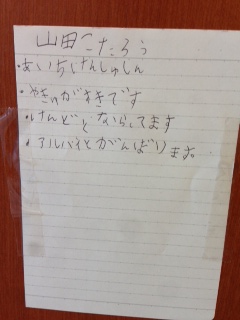 山田こたろう
・あいちけんしゅしん
・やきゅがすきです
・けんどとならてます
・アルバイとがんばります。